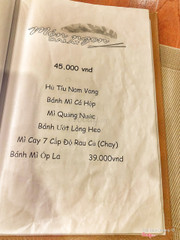 Món ngon
45.000 vnd
Hủ Tíu Nom Vang
Bánh Mì Cá Hộp
Mì Quảng Nước
Bánh Ướt Lòng Heo
Mì Cay 7 Cấp Độ Rau Củ (Chay)
Bánh Mì Ốp La 39.000vnd